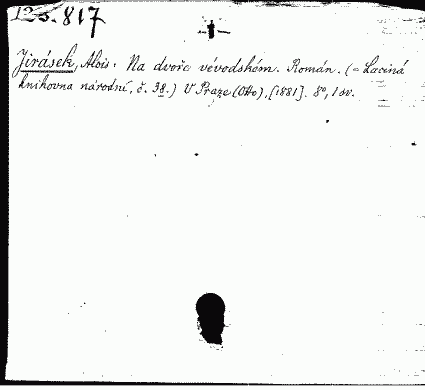 123.817
Jirásek, Alois: Na dvoře vévodském. Román. (= Laciná
knihovna národní, č. 38.) V Praze (Otto), [1881]. 8°, 1 sv.